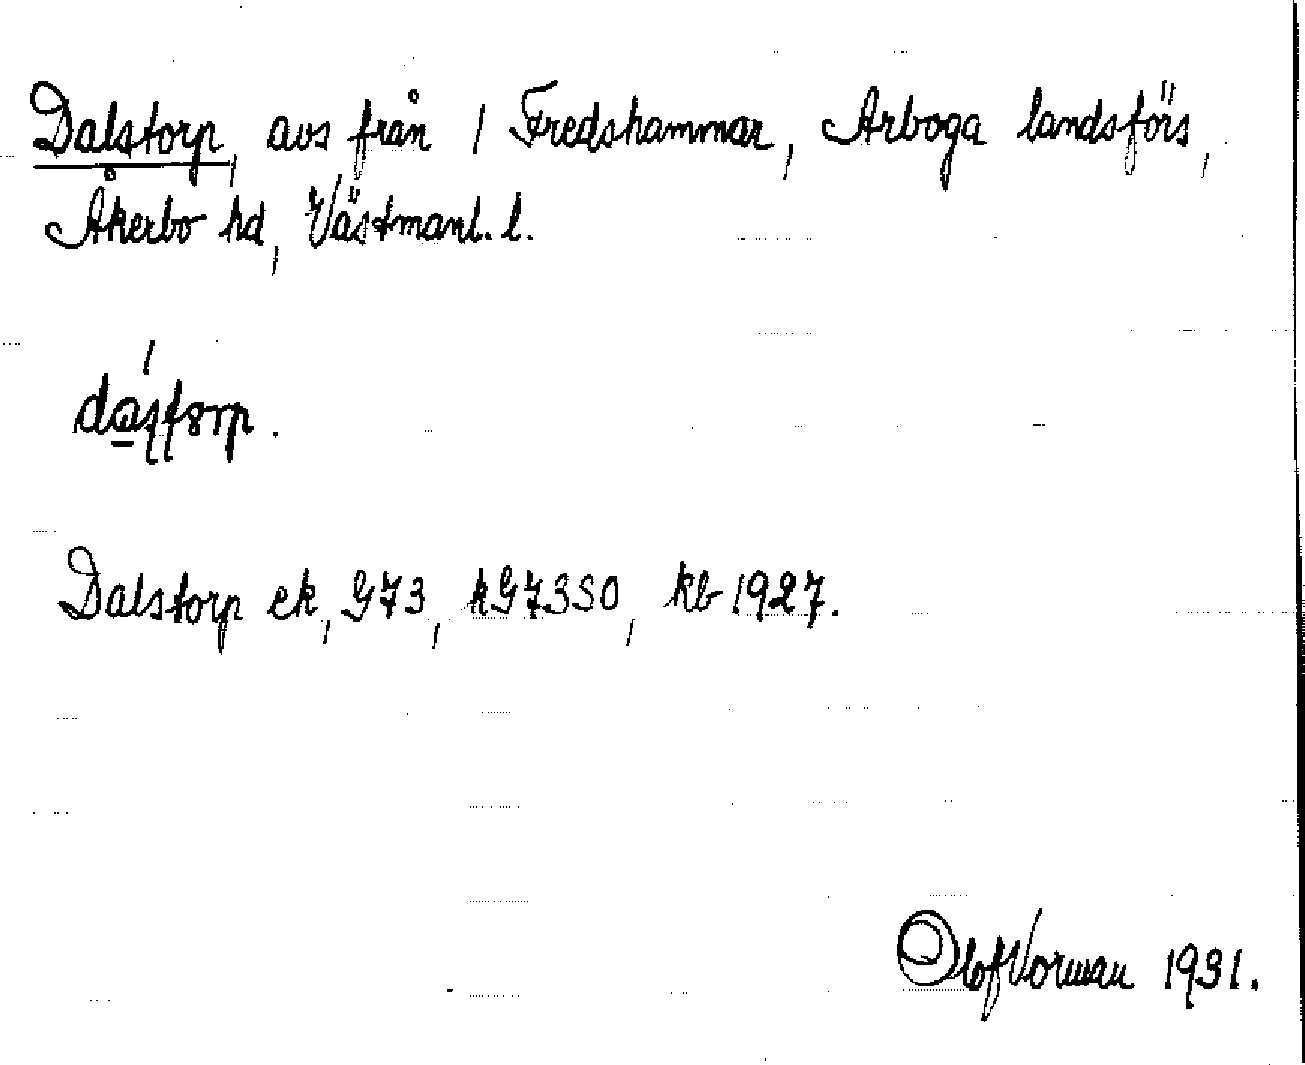 Dalstorp, avs från 1 Fredshammar, Arboga landsförs,
Åkerbo hd, Västmanl. l.
Dalstorp ek, G73, kG73SO, kb 1927.
Olof Vorman 1931.